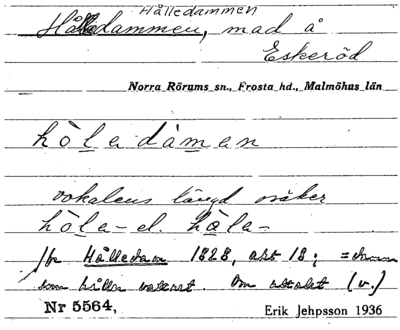 Hålledammen
Hålledammen, mad å
Eskeröd
Norra Rörums sn., Frosta hd., Malmöhus län
hòladàmen
vokalens längd osäker
hòla- el. hàla-
Jfr Hålledam 1828, akt 18; =
som håller vattnet. Om uttalet (v.)
Nr 5564, Erik Jehpsson 1936